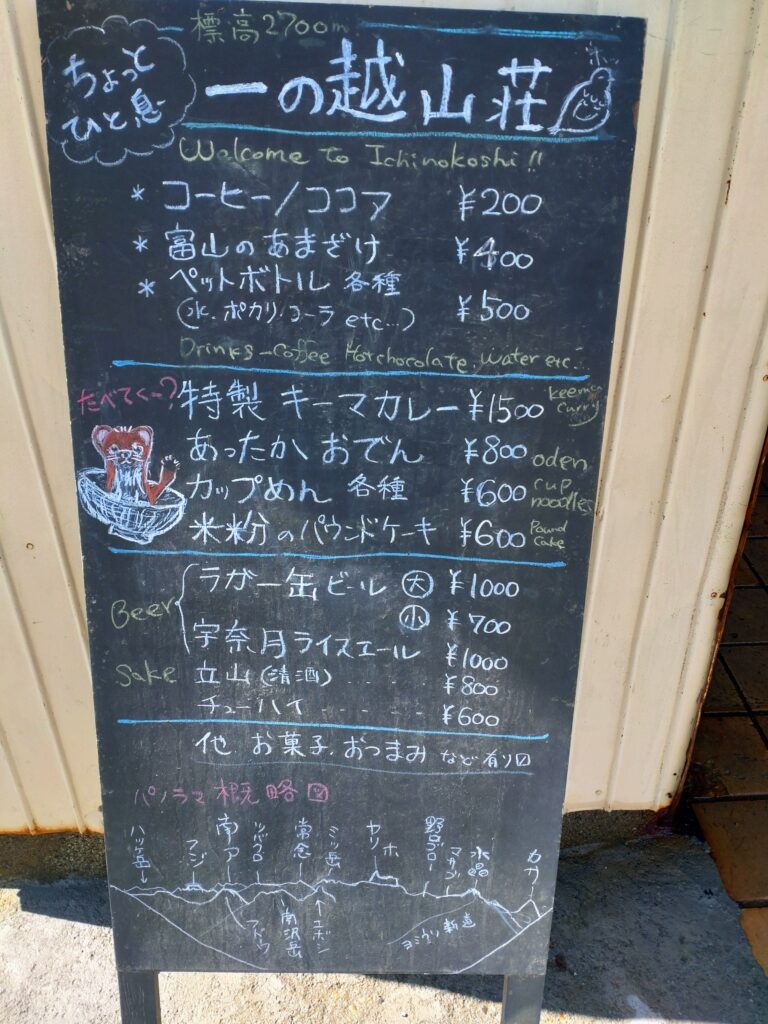 標高2700m
ちょっと
ひと息
一の越山荘
Welcome to Ichinokoshi!!
* コーヒー/ココア ¥200
* 富山のあまざけ ¥400
* ペットボトル 各種 ¥500
(水.ポカリ.コーラ etc...)
Drinks-coffee Hot chocolate, water etc...
たべてくー?
特製 キーマカレー ¥1500 keema curry
あったか おでん ¥800 oden
カップめん 各種 ¥600 cup noodles
米粉のパウンドケーキ ¥600 Pound Cake
Beer
ラガー缶ビール 大 ¥1000
小 ¥700
宇奈月ライスエール ¥1000
Sake 立山(清酒) ¥800
チューハイ ¥600
他 お菓子.おつまみ など有り〼
パノラマ概略図
八ヶ岳
フジ
南ア
ツバクロ
常念
三ツ岳
ヤリ
ホ
野口ゴロー
マサゴ
水晶
南沢岳
エボシ
ヨミウリ新道